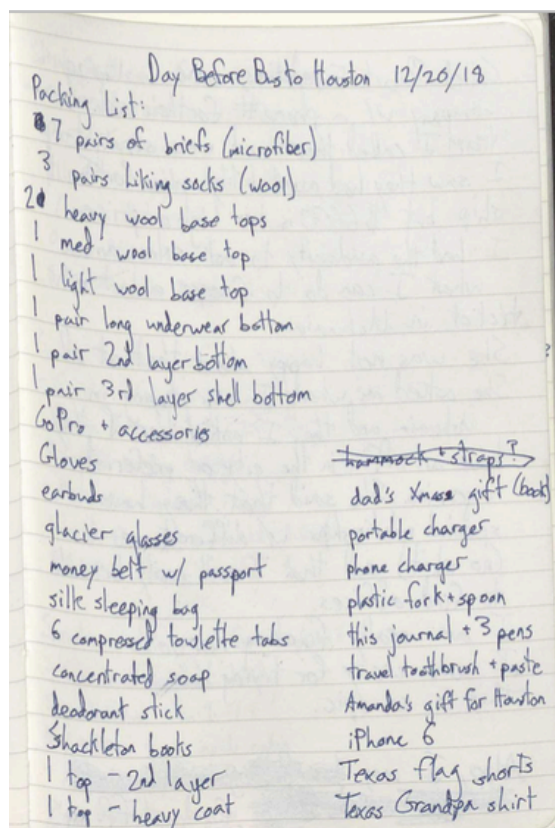 Day Before Bus to Houston 12/26/18
Packing List:
7 pairs of briefs (microfiber)
3 pairs hiking socks (wool)
2 heavy wool base tops
1 med wool base top
1 light wool base top
1 pair long underwear bottom
1 pair 2nd layer bottom
1 pair 3rd layer shell bottom
GoPro + accessories
Gloves
earbuds
glacier glasses
money belt w/ passport
silk sleeping bag
6 compressed towlette tabs
concentrated soap
deodorant stick
Shackleton books
1 top - 2nd layer
1 top - heavy coat
hammock + straps?
dad's Xmas gift (book)
portable charger
phone charger
plastic fork + spoon
this journal + 3 pens
travel toothbrush + paste
Amanda's gift for Houston
iPhone 6
Texas flag shorts
Texas Grandpa shirt